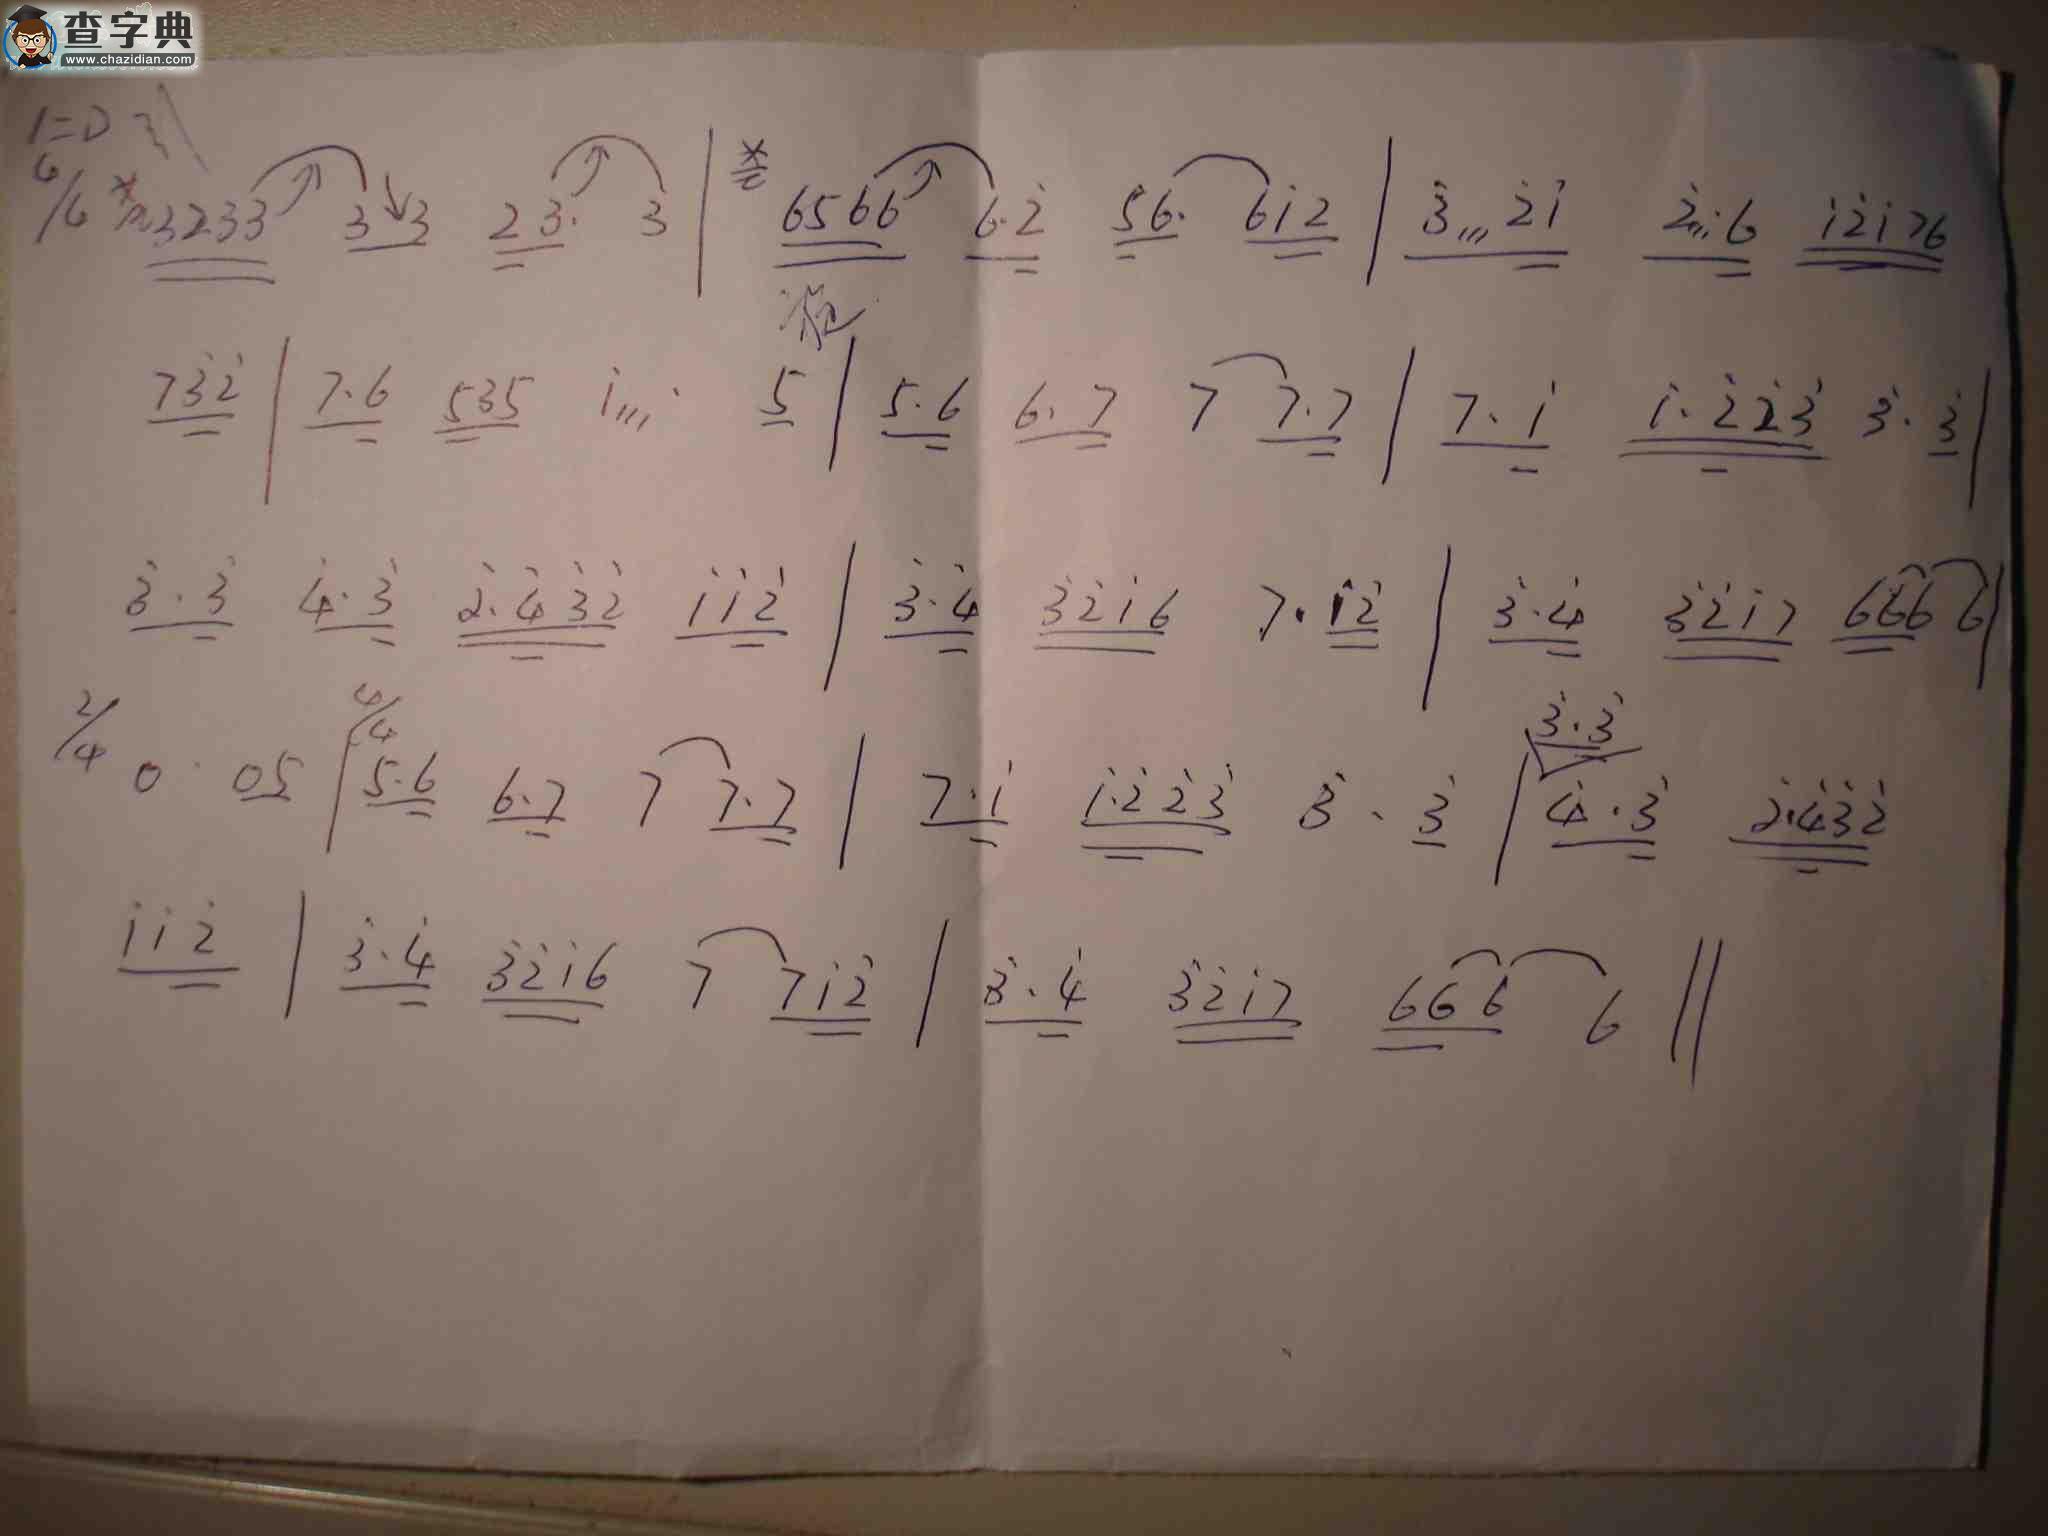 查字典
www.chazidian.com
1=D
4/4 3233 3 3 23· 3 | 6566 6·2̇ 56· 61̇2̇ | 3̇,,, 2̇1̇ 2̇,,,·6 1̇2̇1̇76
73̇2̇ | 7·6 535 1̇,,,· 5 | 5·6 6·7 7 7·7 | 7·1̇ 1̇·2̇2̇3̇ 3̇·3̇ |
3̇·3̇ 4̇·3̇ 2̇·4̇3̇2̇ 1̇1̇2̇ | 3̇·4̇ 3̇2̇1̇6 7·1̇2̇ | 3̇·4̇ 3̇2̇1̇7 666 6 |
2/4 0 05 | 4/4 5·6 6·7 7 7·7 | 7·1̇ 1̇·2̇2̇3̇ 3̇·3̇ | 3̇·3̇ 4̇·3̇ 2̇·4̇3̇2̇
1̇1̇2̇ | 3̇·4̇ 3̇2̇1̇6 7 71̇2̇ | 3̇·4̇ 3̇2̇1̇7 666 6 ||